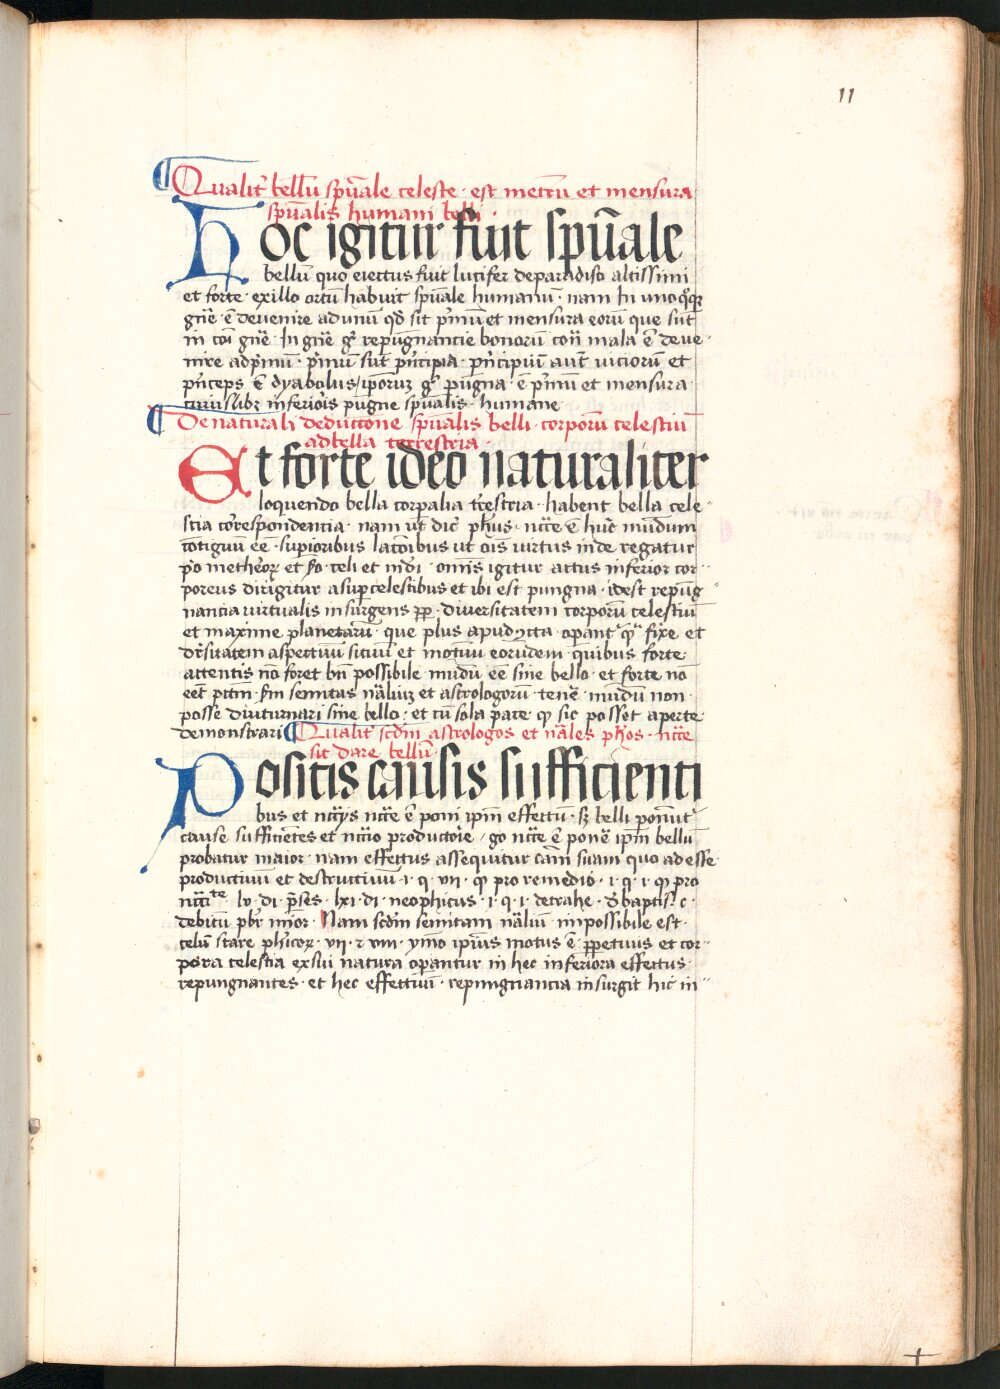 11
¶ Qualit᷑ bellū spūale celeste · est metrū et mensura
spūalis humani belli ·
Hoc igitur fuit spūale
bellū quo eiectus fuit lucifer deparadiso altissimi
et forte · exillo ortū habuit spūale humanū · nam In unoqͦqꝫ
gn̄e · ē devenire adunū qd̄ sit p̄mū et mensura eorū que sūt
in coī gn̄e · In gn̄e gͦ repugnancie bonorū con̄ mala ē deve-
nire adp̄mū · p̄mū sūt p̄ncipia · p̄ncipiū aūt viciorū et
p̄nceps ē dyabolus / ip̄oruꝫ gͦ pugna · ē p̄mū et mensura
cuiuslibꝫ inferioris pugne spūalis · humane
¶ De naturali deductione spūalis belli · corporū celestiū
adbella terrestria ·
Et forte ideo naturaliter
loquendo bella corp̄alia tr̄estria · habent bella cele-
stia cōrespondentia · nam ut dic̄ ph̄us · nc̄ce ē hūc mūdum
cōtiguū eē · superioribus lacōibus ut oīs virtus inde regatur
pͦ metheͦoꝝ et sͦo celi et mōi · omnis igitur actus inferior cor-
poreus dirigitur asupercelestibus et ibi est pungna · idest repug-
nancia virtualis insurgens ꝓp · diversitatem corporū celestiū
et maxime planetarū · que plus apud ꝯcta · operant᷑ qͣ fixe et
dr̄sitatem aspectiuū situū et motiuū eorūdem quibus forte
attentis nō foret bn̄ possibile mūdū eē sine bello · et forte nō
eēt ptm̄ · sm̄ semitas nāliuꝫ et astrologorū · tenē mūdū non ·
posse diuturnari sine bello · et cū sola pāte · qͥ sic posset aperte
demonstrari ¶ Qualit᷑ scd̄m astrologos et nāles ph̄os · nc̄ce
sit dare bellū ·
Positis causis sufficienti
bus et nc̄ijs nc̄ce ē poni ip̄m effectū · sꝫ belli ponūt᷑
cause sufficiētes et nc̄cio productoīe / go nc̄ce ē ponē ip̄m bellū
probatur maior · nam effectus assequitur cām suam quo ad esse
productiuū et destructiuū · i · q · vii · qͥ pro remedio · i · q · i · qͥ pro
nc̄citͣte · lv · di · p̄ses · lxi · di · neophicus · i · q · i · detrahe · d̓ baptis̄ · c ·
debitū pb̄r mīor · Nam scd̄m semitam nāliū impossibile est ·
celū stare ph̄icoꝝ · vii · ꝛ viii · ymo ip̄ius motus ē ꝑpetuus et cor-
pora celestia exsui natura operantur in hec inferiora effectus
repungnantes · et hec effectiuū · repungnancia insurgit hic in-